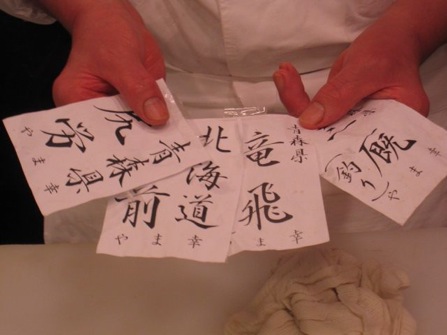 青森県
尻労
やま幸
北海道
前
やま幸
青森県
竜飛
ま幸
三厩
(釣り)
やま幸